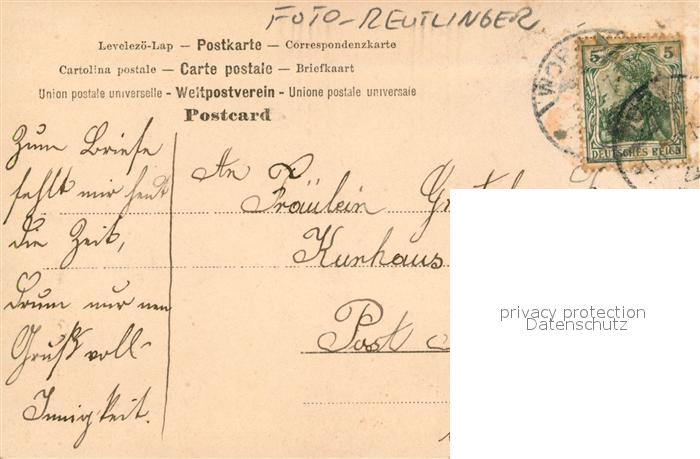 FOTO-REUTLINGER
Levelezö-Lap - Postkarte - Correspondenzkarte
Cartolina postale - Carte postale - Briefkaart
Union postale universelle - Weltpostverein - Unione postale universale
Postcard
5 5
DEUTSCHES REICH
WOR
Zum Briefe
fehlt mir heut
die Zeit,
Drum nur nen
Gruß voll
Innigkeit.
An
Fräulein
Kurhaus
Post
privacy protection
Datenschutz